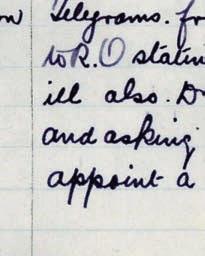 Telegrams. fr
to R.O statin
ill also. D
and asking
appoint a